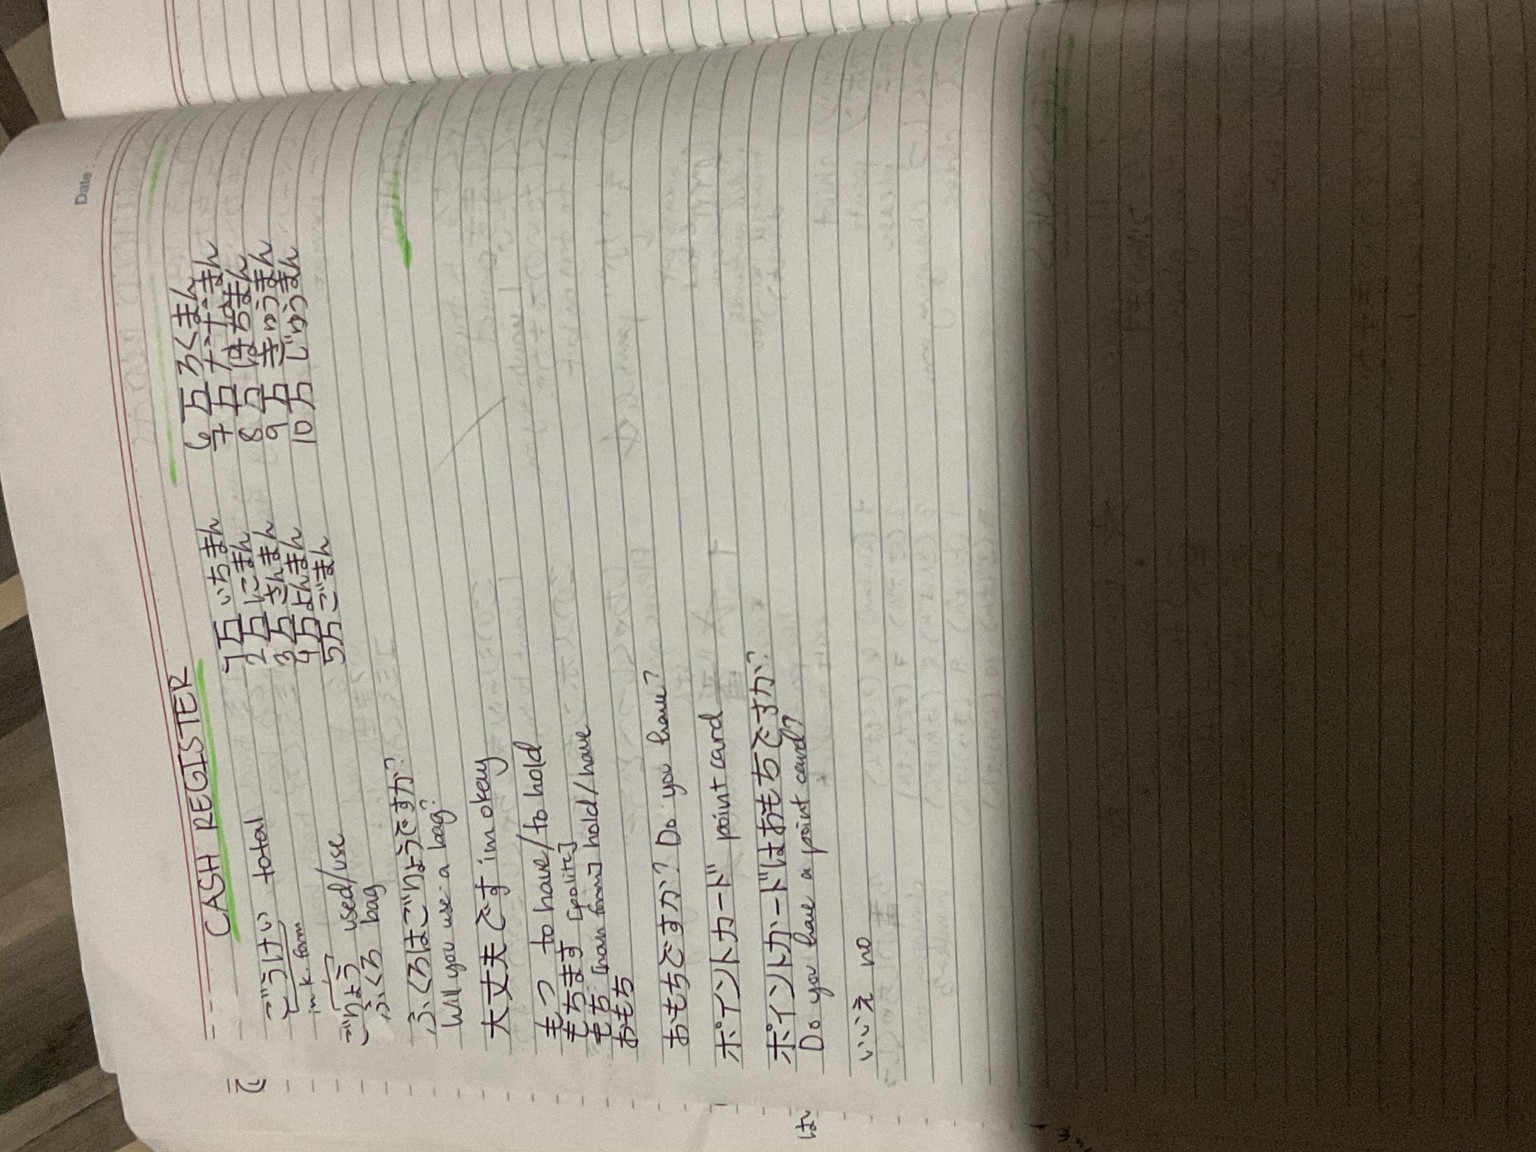 Date
CASH REGISTER
ごうけい total
in k. form
ごりょう used/use
ふくろ bag
1万 いちまん
2万 にまん
3万 さんまん
4万 よんまん
5万 ごまん
6万 ろくまん
7万 ななまん
8万 はちまん
9万 きゅうまん
10万 じゅうまん
ふくろはごりょうですか?
Will you use a bag?
大丈夫です im okay
もつ to have/to hold
もちます [polite]
もち [noun form] hold/have
おもち
おもちですか? Do you have?
ポイントカード point card
ポイントカードはおもちですか?
Do you have a point card?
いいえ no